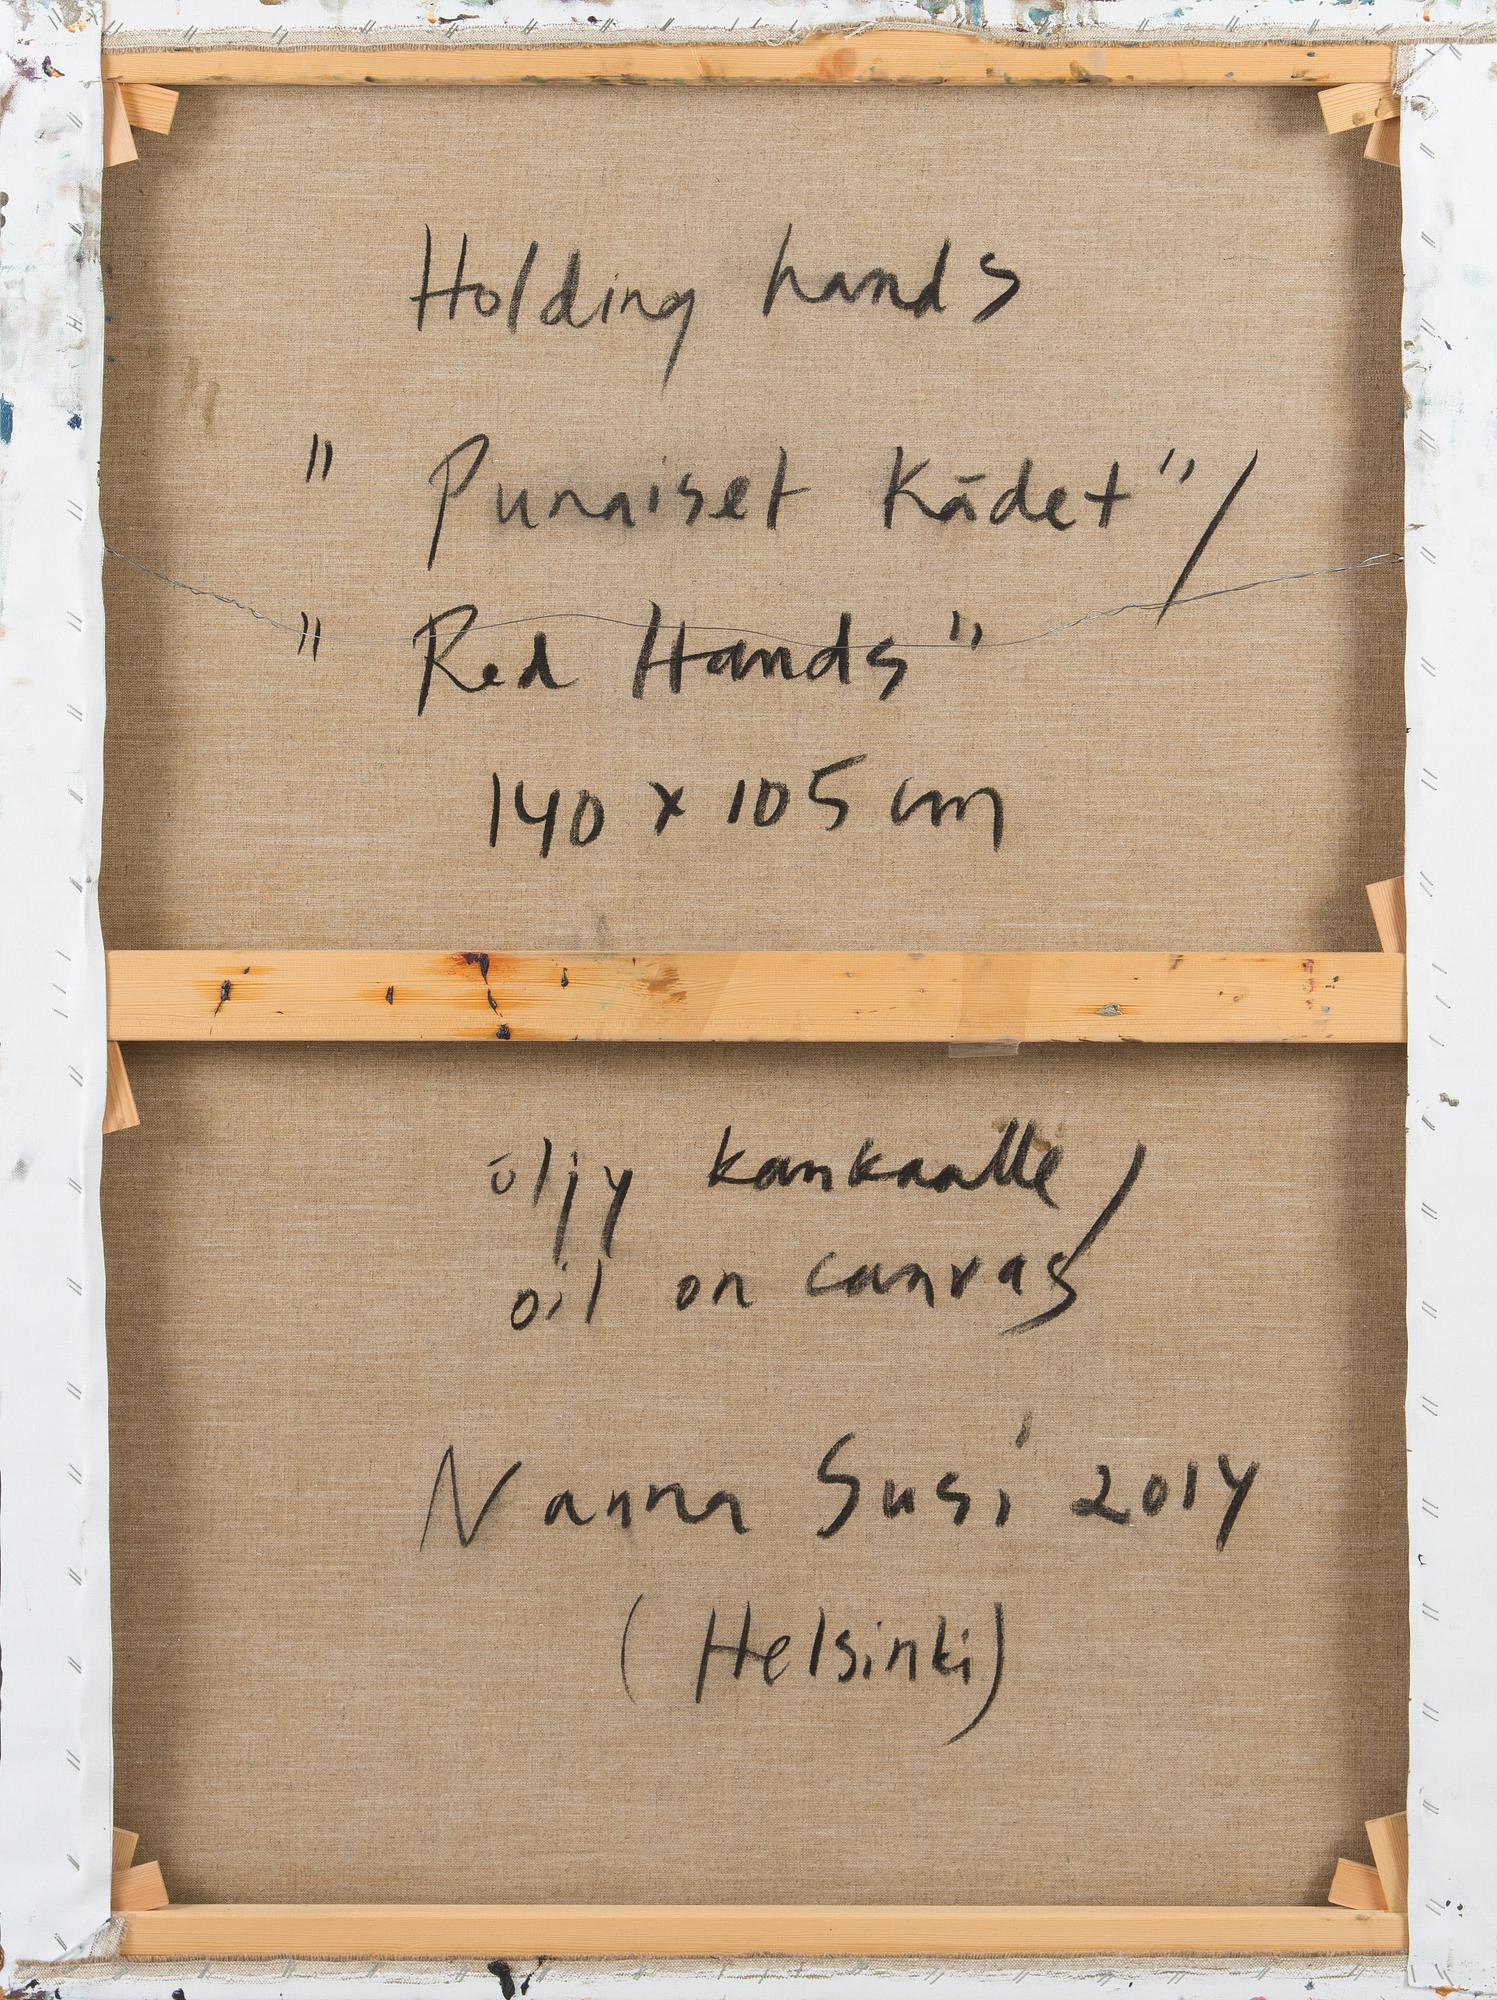 Holding hands
" Punaiset Kādet" /
" Red Hands "
140 x 105 cm
öljy kankaalle /
oil on canvas
Nanna Susi 2014
( Helsinki )